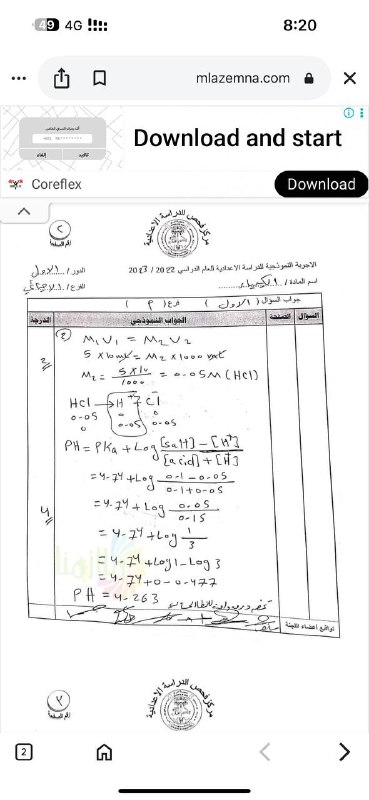 49 4G 8:20
mlazemna.com
Download and start
Coreflex
Download
مركز فحص الدراسة الاعدادية
٢
رقم الصفحة
الاجوبة النموذجية للدراسة الاعدادية للعام الدراسي 2022 / 2023
الدور / الاول
اسم المادة / الكيمياء
الفرع / الاحيائي
جواب السؤال ( الاول ) فرع ( P )
السؤال الصفحة الجواب النموذجي الدرجة
② M₁V₁ = M₂V₂
5 × 10 ml = M₂ × 1000 ml
M₂ = 5×10/1000 = 0.05M (HCl)
HCl → H⁺ + Cl⁻
0.05 0 0
0 0.05 0.05
PH = PKa + Log [salt] - [H⁺]/[acid] + [H⁺]
= 4.74 + Log 0.1 - 0.05/0.1 + 0.05
٤
= 4.74 + Log 0.05/0.15
= 4.74 + Log 1/3
= 4.74 + Log 1 - Log 3
= 4.74 + 0 - 0.477
PH = 4.263
تواقيع اعضاء اللجنة
مركز فحص الدراسة الاعدادية
٣
رقم الصفحة
2